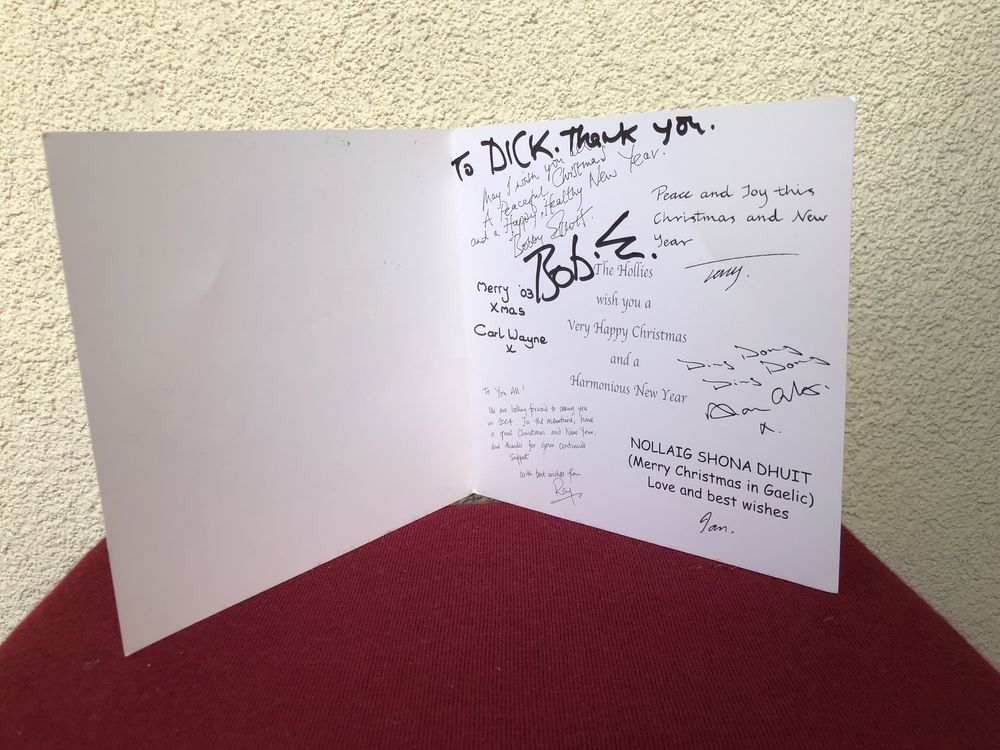 To DICK. Thank you.
May I wish you all
A Peaceful Christmas
and a Happy, Healthy New Year.
Bobby Elliott.
Bob. E.
Peace and Joy this
Christmas and New
Year
Tony.
Merry '03
Xmas
Carl Wayne
x
The Hollies
wish you a
Very Happy Christmas
and a
Harmonious New Year
Ding Dong
Ding Dong
Alan
x.
To You All!
We are looking forward to seeing you
in 2004. In the meantime, have
a great Christmas and New Year.
and thanks for your continued
support
With best wishes from
Ray
NOLLAIG SHONA DHUIT
(Merry Christmas in Gaelic)
Love and best wishes
Ian.